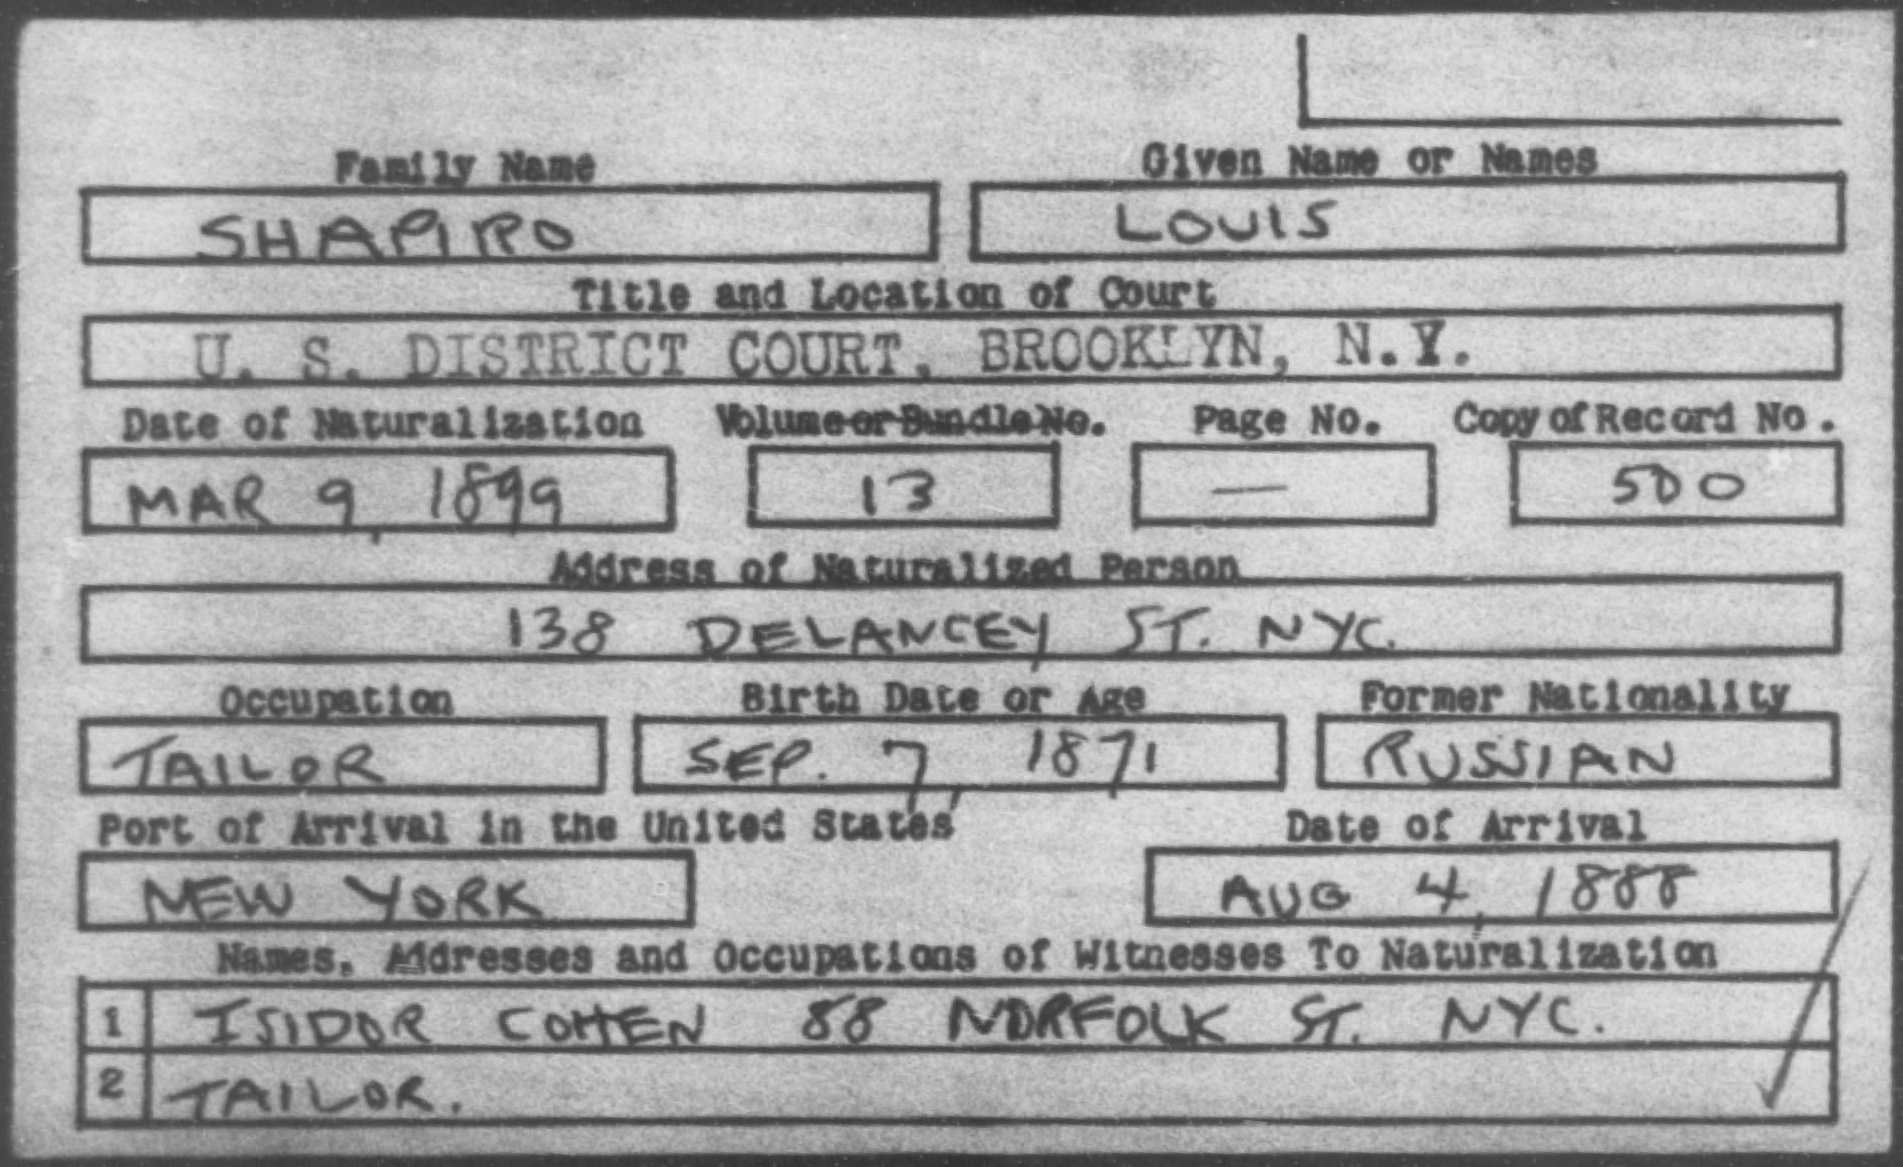 Family Name Given Name or Names
SHAPIRO LOUIS
Title and Location of Court
U. S. DISTRICT COURT, BROOKLYN, N.Y.
Date of Naturalization Volume or Bundle No. Page No. Copy of Record No.
MAR 9, 1899 13 — 500
Address of Naturalized Person
138 DELANCEY ST. NYC.
Occupation Birth Date or Age Former Nationality
TAILOR SEP. 7, 1871 RUSSIAN
Port of Arrival in the United States Date of Arrival
NEW YORK AUG 4, 1888
Names, Addresses and Occupations of Witnesses To Naturalization
1 ISIDOR COHEN 88 NORFOLK ST. NYC.
2 TAILOR.